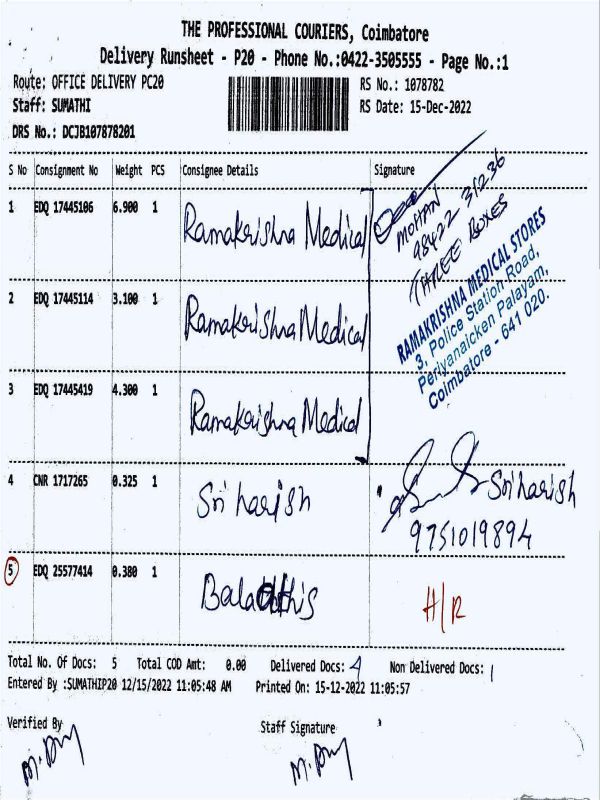 THE PROFESSIONAL COURIERS, Coimbatore
Delivery Runsheet - P20 - Phone No.:0422-3505555 - Page No.:1
Route: OFFICE DELIVERY PC20 RS No.: 1078782
Staff: SUMATHI RS Date: 15-Dec-2022
DRS No.: DCJB107878201
S No Consignment No Weight PCS Consignee Details Signature
1 EDQ 17445106 6.900 1 Ramakrishna Medical
MOHAN
98422 31236
THREE BOXES
RAMAKRISHNA MEDICAL STORES
3, Police Station Road,
Periyanaicken Palayam,
Coimbatore - 641 020.
2 EDQ 17445114 3.100 1 Ramakrishna Medical
3 EDQ 17445419 4.300 1 Ramakrishna Medical
4 CNR 1717265 0.325 1 Sri harish Sri harish
9751019894
5 EDQ 25577414 0.380 1 H/R
Total No. Of Docs: 5 Total COD Amt: 0.00 Delivered Docs: 4 Non Delivered Docs: 1
Entered By :SUMATHIP20 12/15/2022 11:05:48 AM Printed On: 15-12-2022 11:05:57
Verified By Staff Signature